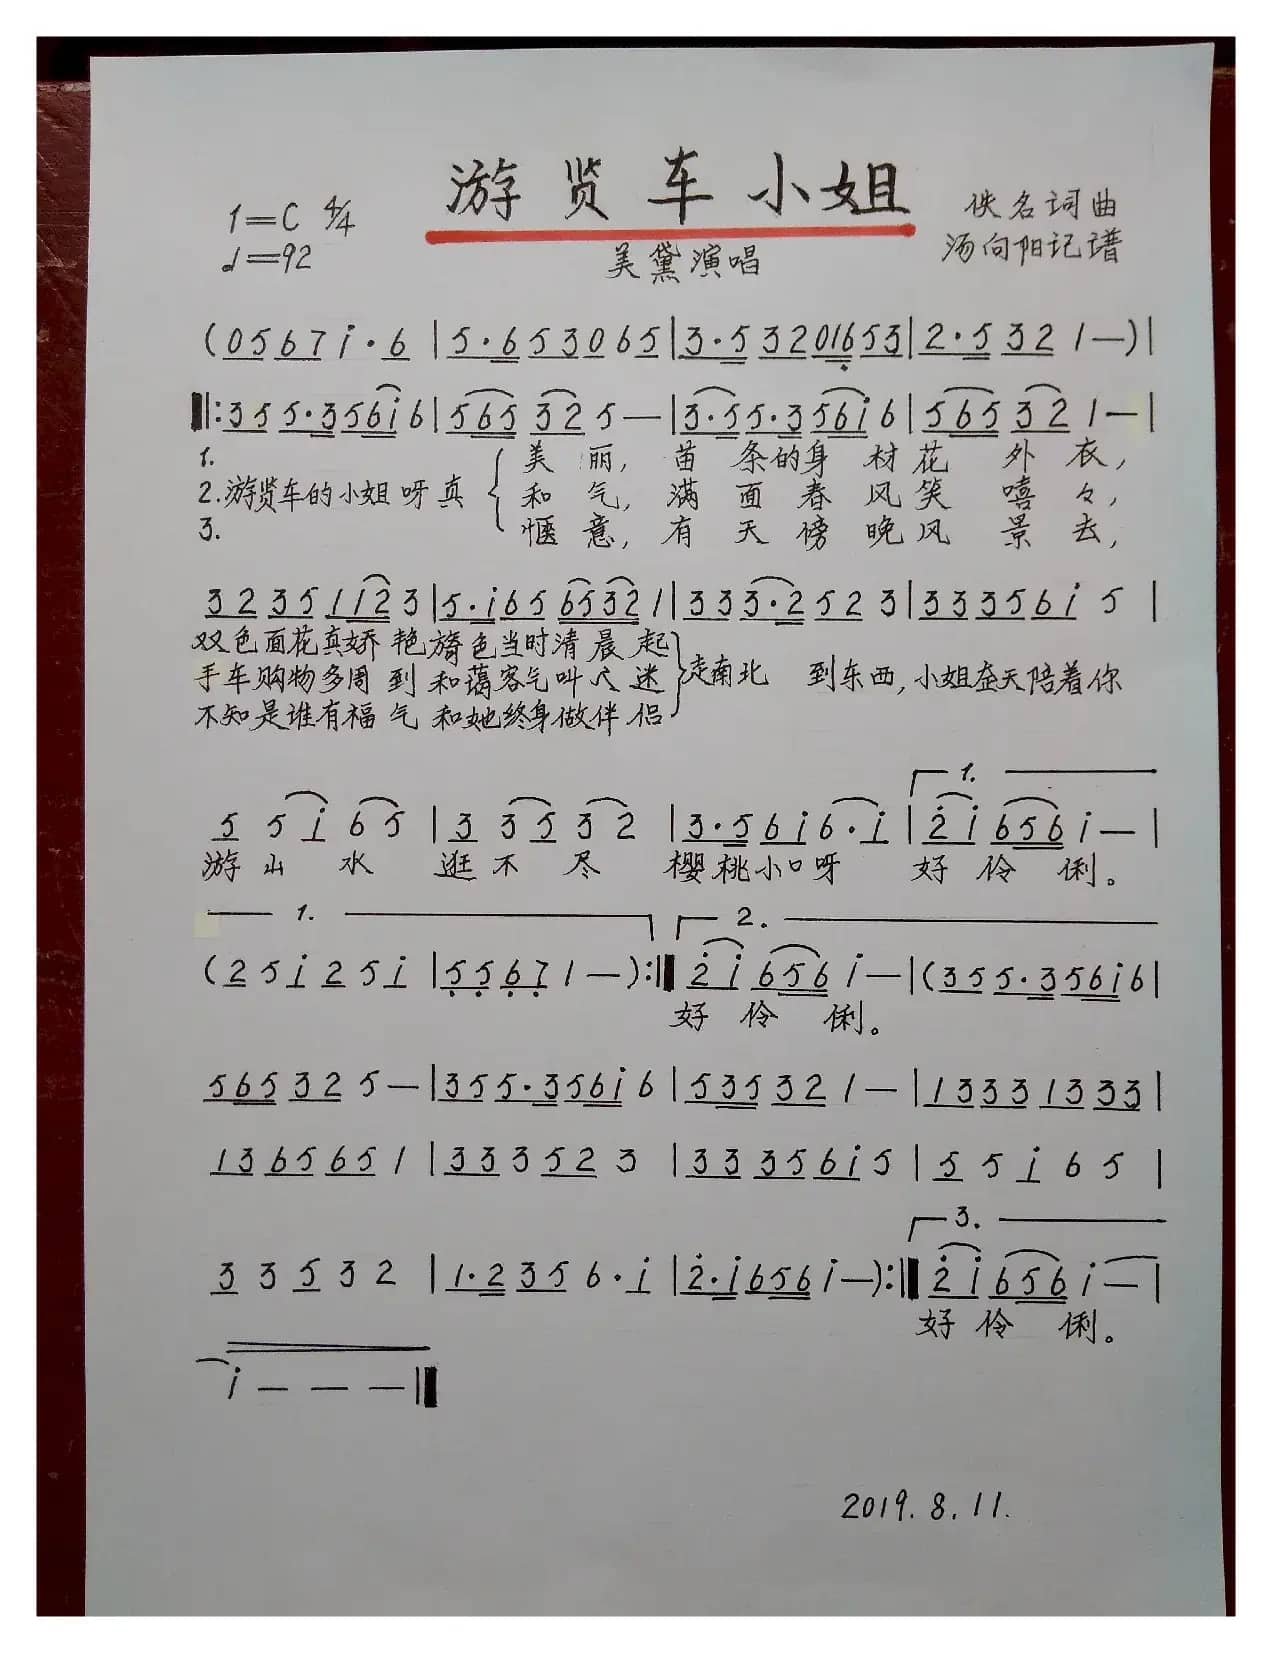 游贤车小姐
1=C 4/4
佚名词曲
♩=92
美黛演唱
汤向阳记谱
(0567i·6|5·653065|3·53201653|2·5321—)|
‖:355·356i6|565325—|3·55·356i6|565321·—|
1. 美丽,苗条的身材花外衣,
2.游贤车的小姐呀真 和气,满面春风笑嘻々,
3. 惬意,有天傍晚风景去,
32351123|5·i6565321|333·2523|33356i5|
双色面花真娇艳旖色当时清晨起
手车购物多周到和蔼客气叫人迷 走南北 到东西,小姐在天陪着你
不知是谁有福气和她终身做伴侣
1.
55i65|33532|3·56i6·i|2i656i—|
游山水逛不尽樱桃小口呀好伶俐。
1. 2.
(25i25i|55671—):‖2i656i—|(355·356i6|
好伶俐。
565325—|355·356i6|535321—|13331333|
1365651|333523|33356i5|55i65|
3.
33532|1·2356·i|2·i656i—):‖2i656i—|
好伶俐。
i———‖
2019.8.11.